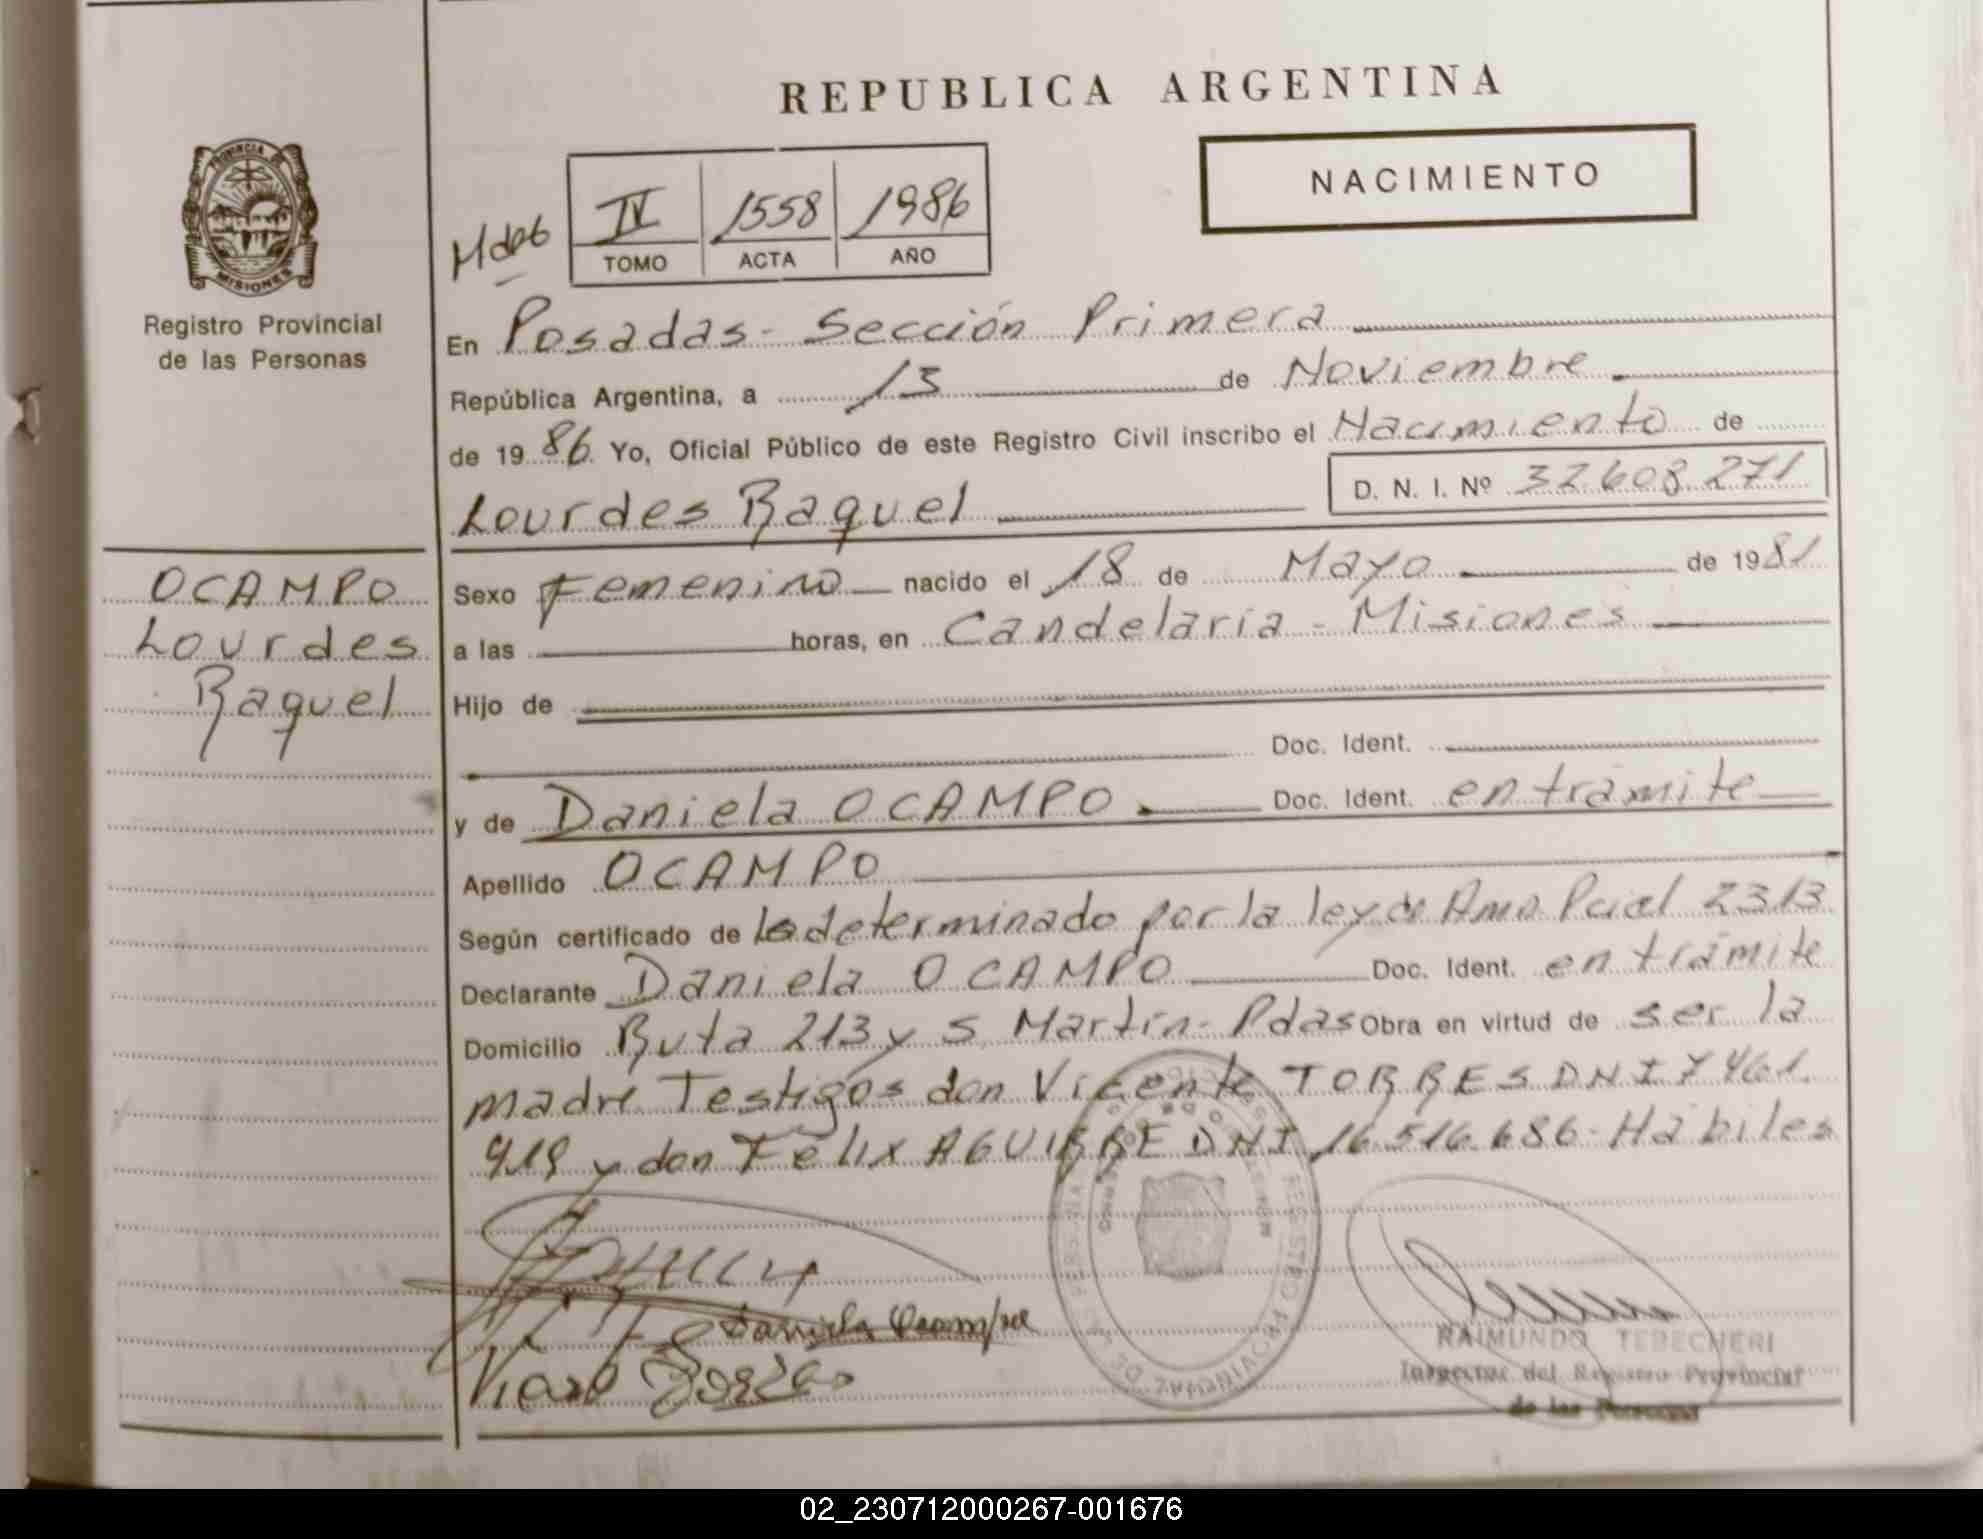 REPUBLICA ARGENTINA
NACIMIENTO
PROVINCIA DE
MISIONES
Registro Provincial
de las Personas
IV 1558 1986
TOMO ACTA AÑO
En Posadas - Sección Primera
República Argentina, a 13 de Noviembre
de 1986 Yo, Oficial Público de este Registro Civil inscribo el Nacimiento de
Lourdes Raquel D. N. I. Nº 32.608.271
OCAMPO
Lourdes
Raquel
Sexo Femenino nacido el 18 de Mayo de 1981
a las horas, en Candelaria - Misiones
Hijo de
Doc. Ident.
y de Daniela OCAMPO Doc. Ident. en trámite
Apellido OCAMPO
Según certificado de lo determinado por la ley de Amn. Pcial 2313
Declarante Daniela OCAMPO Doc. Ident. en trámite
Domicilio Ruta 213 y S. Martín - Pdas Obra en virtud de ser la
madre Testigos don Vicente TORRES DNI 7.461.
919 y don Félix AGUIRRE DNI 16.516.686 - Hábiles
Daniela Ocampo
RAIMUNDO TERECHERI
Inspector del Registro Provincial
de las Personas
02_230712000267-001676